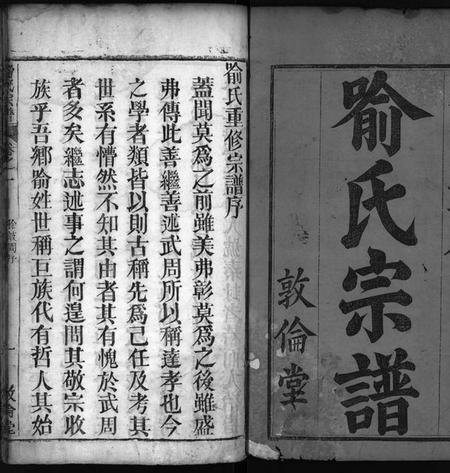 喻氏宗譜
敦倫堂
喻氏重修宗譜序
蓋聞莫為之前雖美弗彰莫為之後雖盛
弗傳此善繼善述武周所以稱達孝也今
之學者類皆以則古稱先為己任及考其
世系有懵然不知其由者其有愧於武周
者多矣繼志述事之謂何遑間其敬宗收
族乎吾鄉喻姓世稱巨族代有哲人其始
敦倫堂